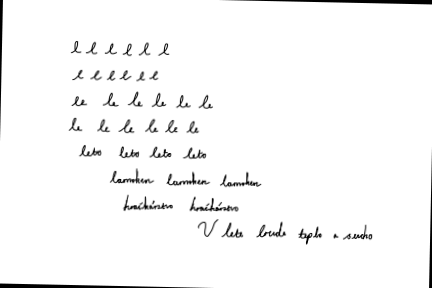 l l l l l l
l l l l l l
le le le le le le
le le le le le le
leto leto leto leto
lamohen lamohen lamohen
hračkárstvo hračkárstvo
V lete bude teplo a sucho